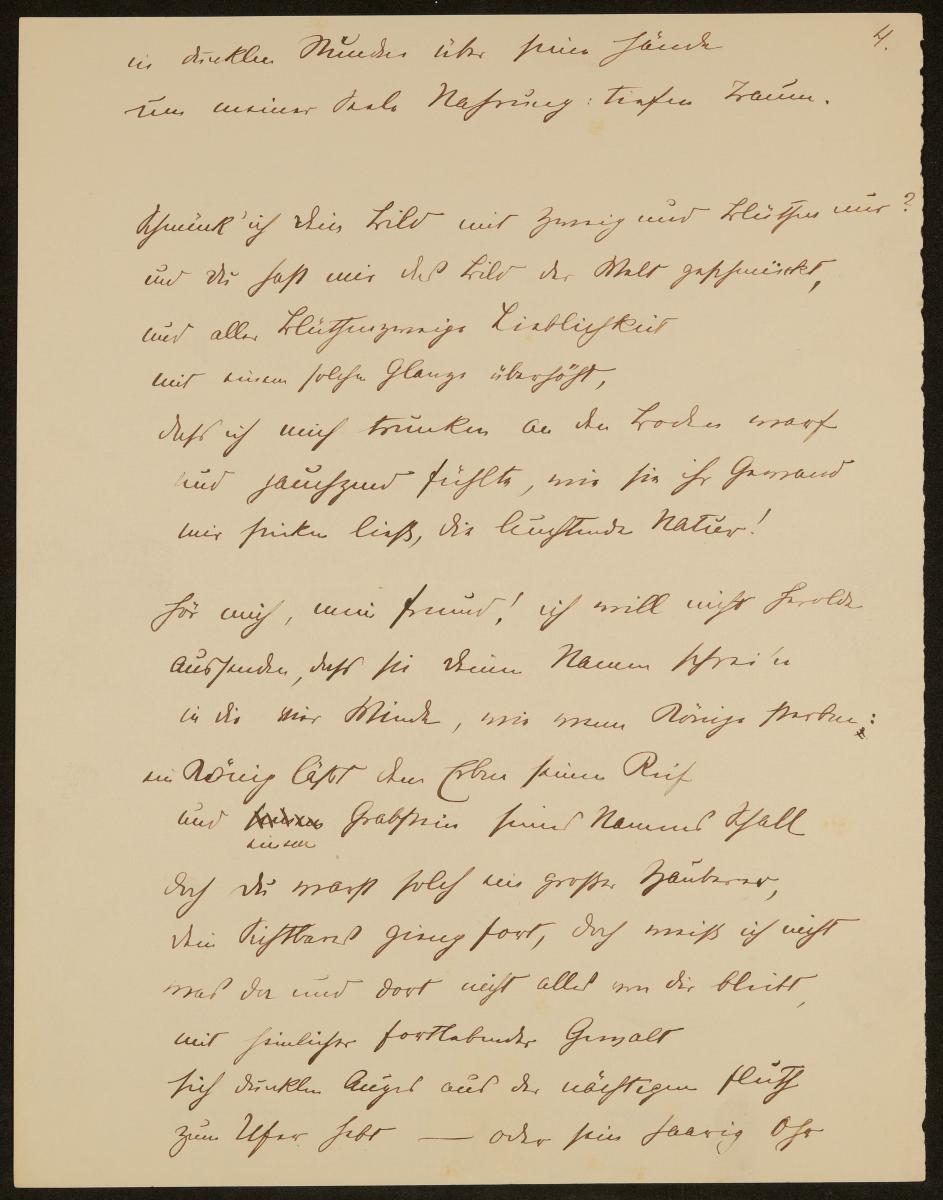 4.
in dunklen Stunden über seine Hände
um meiner Seele Nahrung: tiefen Traum.
Schmück' ich dein Bild mit Zweig und Blüthen nur?
und du hast mir das Bild der Welt geschmückt,
und aller Blüthenzweige Lieblichkeit
mit einem solchen Glanze überhöht,
dass ich mich trunken an den Boden warf
und jauchzend fühlte, wie sie ihr Gewand
mir sinken ließ, die leuchtende Natur!
Hör mich, mein Freund! ich will nicht Herolde
aussenden, dass sie deinen Namen schrei'n
in die vier Winde, wie wenn Könige sterben:
ein König läßt dem Erben seinen Reif
und einem Grabstein seines Namens Schall
doch du warst solch ein großer Zauberer,
dein Sichtbares gieng fort, doch weiß ich nicht
was da und dort nicht alles von dir bleibt,
mit heimlicher fortlebender Gewalt
sich dunklen Auges aus der nächtigen Fluth
zum Ufer hebt — oder sein haarig Ohr